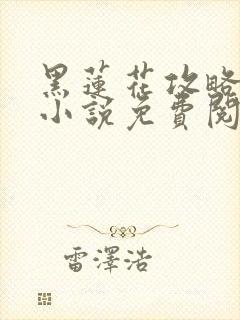 黑蓮花攻略
小說免費閱
雷澤浩